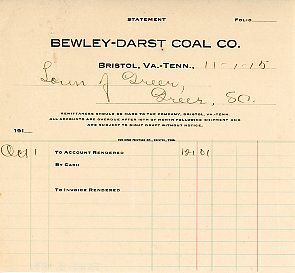 STATEMENT FOLIO
BEWLEY-DARST COAL CO.
BRISTOL, VA.-TENN., 11-1-15
Town of Greer,
Greer, SC.
REMITTANCES SHOULD BE MADE TO THE COMPANY, BRISTOL, VA.-TENN.
ALL ACCOUNTS ARE OVERDUE AFTER 10TH OF MONTH FOLLOWING SHIPMENT AND
ARE SUBJECT TO SIGHT DRAFT WITHOUT NOTICE.
191
Oct 1 TO ACCOUNT RENDERED 121 01
BY CASH
TO INVOICE RENDERED